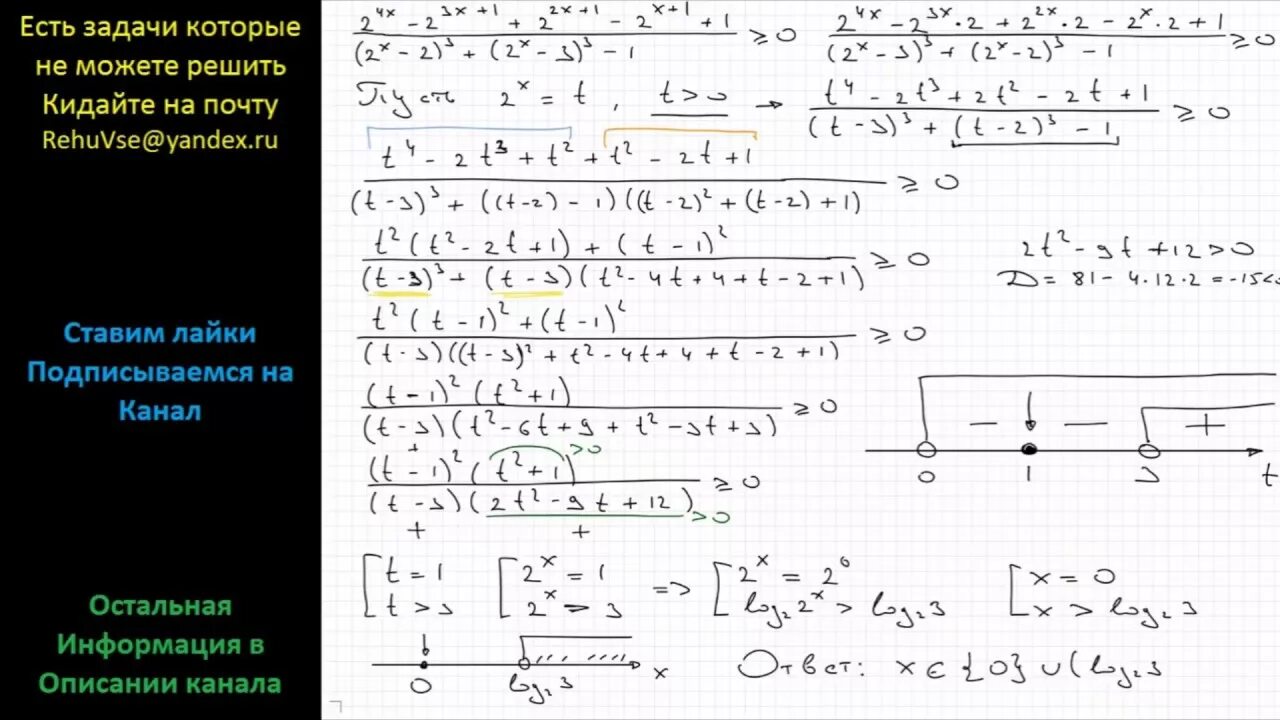 Есть задачи которые
не можете решить
Кидайте на почту
RehuVse@yandex.ru
Ставим лайки
Подписываемся на
Канал
Остальная
Информация в
Описании канала
(2^{4x} - 2^{3x+1} + 2^{2x+1} - 2^{x+1} + 1) / ((2^x - 2)^3 + (2^x - 3)^3 - 1) ≥ 0
(2^{4x} - 2^{3x}·2 + 2^{2x}·2 - 2^x·2 + 1) / ((2^x - 3)^3 + (2^x - 2)^3 - 1) ≥ 0
Пусть 2^x = t, t > 0 → (t^4 - 2t^3 + 2t^2 - 2t + 1) / ((t - 3)^3 + (t - 2)^3 - 1) ≥ 0
(t^4 - 2t^3 + t^2 + t^2 - 2t + 1) / ((t - 3)^3 + ((t - 2) - 1)((t - 2)^2 + (t - 2) + 1)) ≥ 0
(t^2(t^2 - 2t + 1) + (t - 1)^2) / ((t - 3)^3 + (t - 3)(t^2 - 4t + 4 + t - 2 + 1)) ≥ 0
2t^2 - 9t + 12 > 0
D = 81 - 4·12·2 = -15 < 0
(t^2(t - 1)^2 + (t - 1)^2) / ((t - 3)((t - 3)^2 + t^2 - 4t + 4 + t - 2 + 1)) ≥ 0
((t - 1)^2(t^2 + 1)) / ((t - 3)(t^2 - 6t + 9 + t^2 - 3t + 3)) ≥ 0
+ > 0
((t - 1)^2(t^2 + 1)) / ((t - 3)(2t^2 - 9t + 12)) ≥ 0
> 0
+ +
- - +
0 1 3 t
[t = 1 [2^x = 1 => [2^x = 2^0 [x = 0
[t > 3 [2^x > 3 [log_2 2^x > log_2 3 [x > log_2 3
0 log_2 3 x
Ответ: x ∈ {0} ∪ (log_2 3